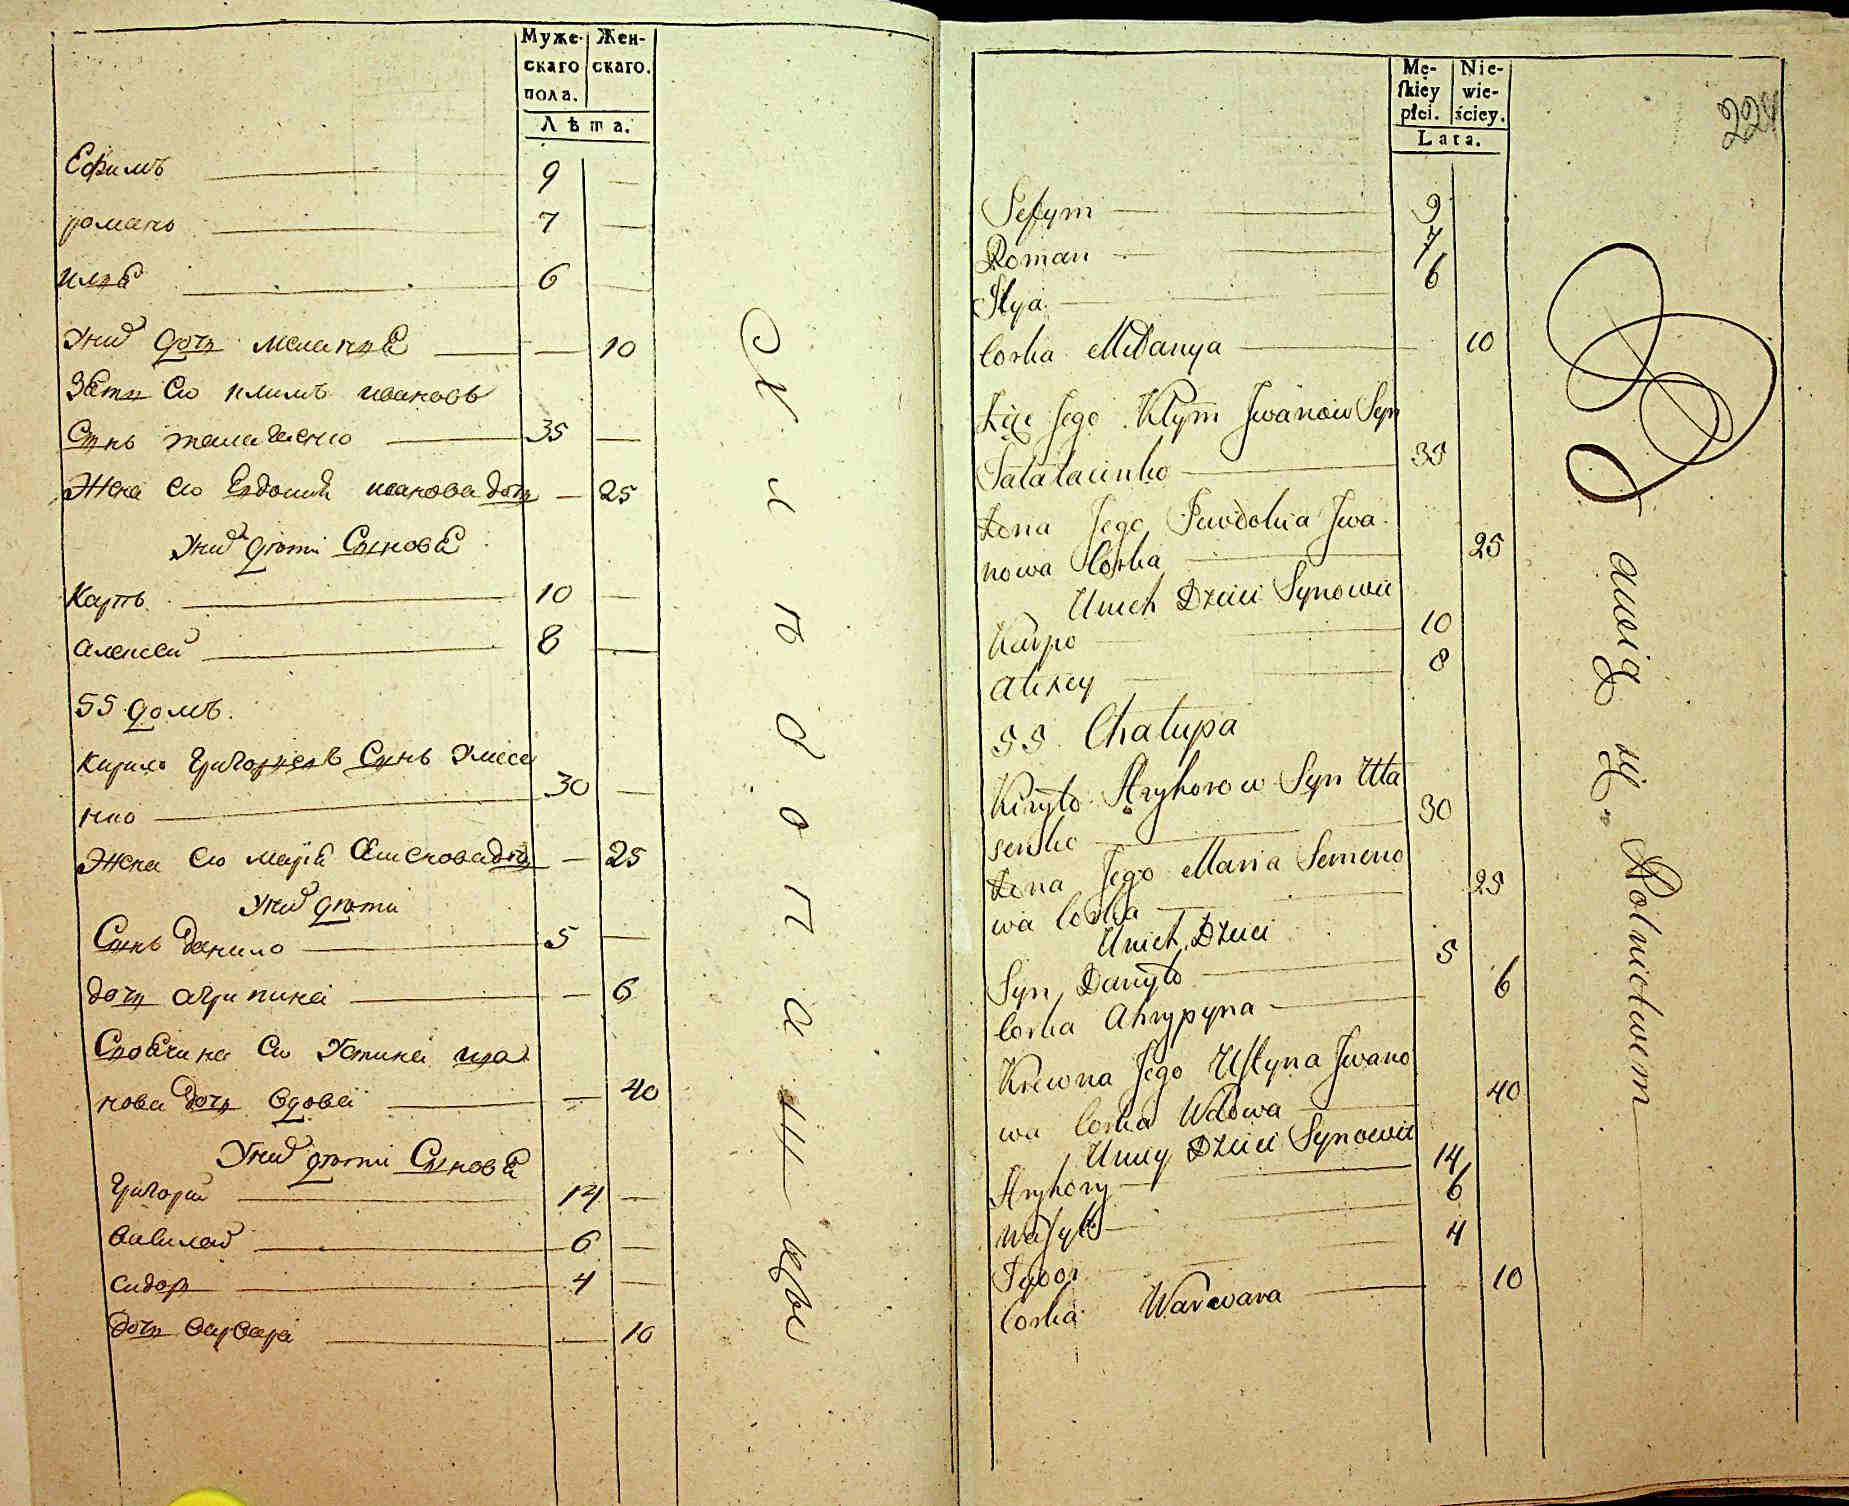 Муже-
скаго
пола.
Жен-
скаго.
Лѣта.
Ефимъ 9
романъ 7
илѣя 6
Унихъ дочь меланія 10
Зять его климъ ивановъ
Сынъ талалаенко 35
Жена его Евдокия иванова дочь 25
Унихъ дѣти Сыновя
Карпъ 10
алексей 8
55 домъ.
кирило григориевъ Сынъ
нко 30
Жена его марія Семенова дочь 25
Унихъ дѣти
Сынъ данило 5
дочь агрипина 6
Его Устина ива
нова дочь вдова 40
Унихъ дѣти Сыновя
григорий 14
василей 6
сидор 4
дочь варвара 10
пашцы
Mę-
ſkiey
płci.
Nie-
wie-
ściey.
Lata.
224
Jefym 9
Roman 7
Ilya 6
Corka Mełanya 10
Zięc Jego Kłym Jwanow Syn
Tałałaienko 35
Żona Jego Jewdokia Jwa
nowa Corka 25
Unich Dzieci Synowie
Karpo 10
Alexey 8
55 Chałupa
Kiryło Hryhorow Syn Ułta
senko 30
Żona Jego Maria Semeno
wa Corka 25
Unich Dzieci
Syn Danyło 5
Corka Ahrypyna 6
Krewna Jego Uſtyna Jwano
wa Corka Wdowa 40
Uniey Dzieci Synowie
Hryhory 14
Waſyl 6
Sydor 4
Corka Warwara 10
Bawią się Rolnictwem